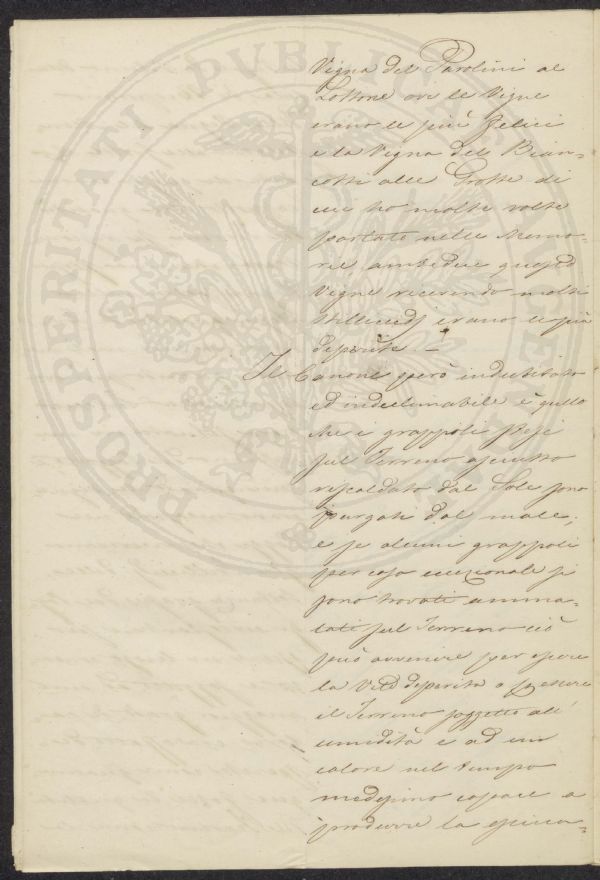 PROSPERITATI PVBLICAE AVGENDAE
Vigna del Parolini al
Lottone ove le Vigne
erano le più felici
e la Vigna del Bian=
cotti alle Grotte di
cui ho molte volte
parlato nelle Memo=
rie, ambedue queste
Vigne ricevendo molti
stillicidj erano le più
deperite. —
Il Canone però indubitato
ed indeclinabile è quello
che i grappoli posti
sul Terreno asciutto
riscaldato dal Sole sono
purgati dal male;
e se alcuni grappoli
per caso eccezionale si
sono trovati amma=
lati sul Terreno ciò
può avvenire per essere
la Vite deperita o per essere
il Terreno soggetto all'
umidità e ad un
calore nel tempo
medesimo capace a
produrre la effica=